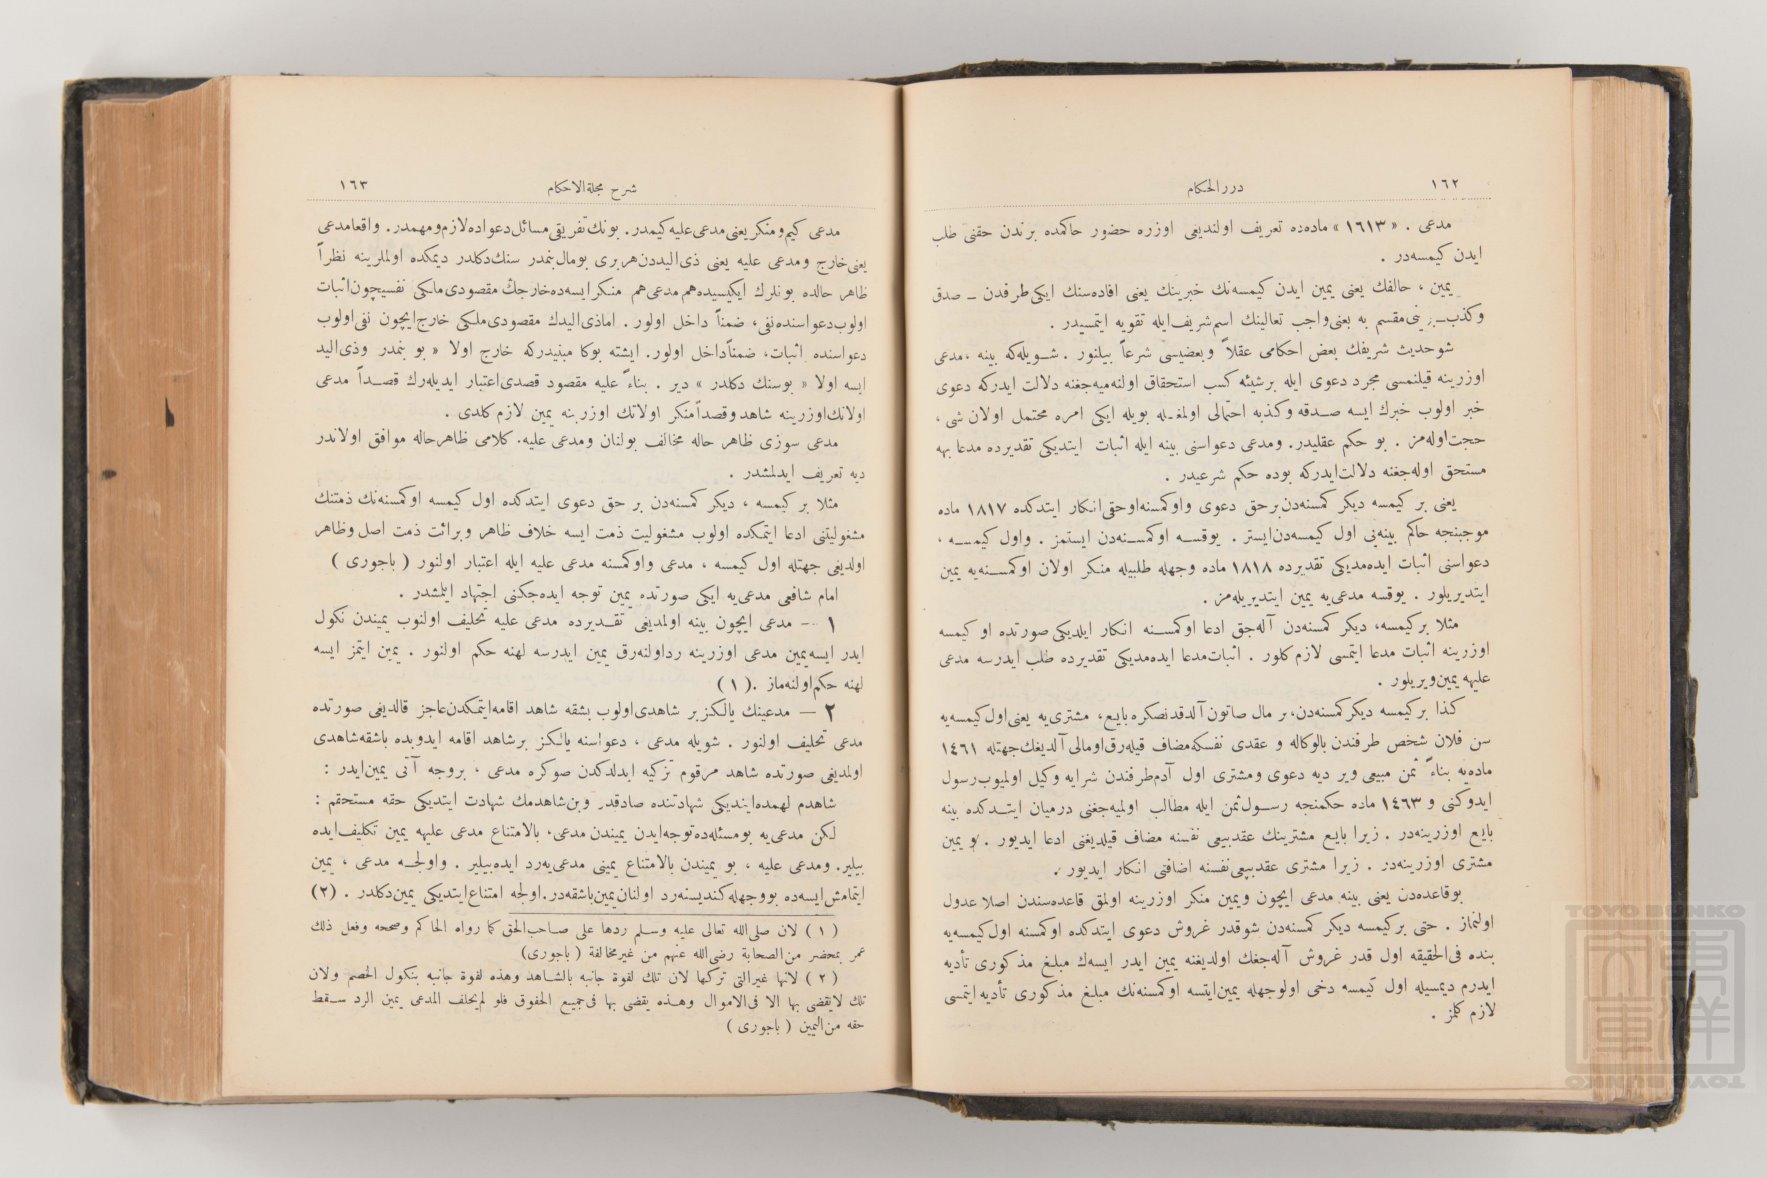 ١٦٢
دررالحكام
مدعی . « ١٦١٣ » ماده‌ده تعريف اولنديغی اوزره حضور حاكمده برندن حقنی طلب
ايدن كيمسه‌در .
يمين ، حالفك يعنی يمين ايدن كيمسه‌نك خبرينك يعنی افاده‌سنك ايكی طرفدن ــ صدق
وكذب ــ برينی مقسم به يعنی واجب تعالينك اسم شريف ايله تقويه ايتمسيدر .
شو حديث شريفك بعض احكامی عقلاً وبعضيسی شرعاً بيلنور . شويله‌كه بينه ، مدعی
اوزرينه قيلنمسی مجرد دعوی ايله برشيئه كسب استحقاق اولنه‌ميه‌جغنه دلالت ايدركه دعوی
خبر اولوب خبرك ايسه صدقه وكذبه احتمالی اولمغله بويله ايكی امره محتمل اولان شی ،
حجت اوله‌مز . بو حكم عقليدر. ومدعی دعواسنی بينه ايله اثبات ايتديكی تقديرده مدعا بهه
مستحق اوله‌جغنه دلالت ايدركه بوده حكم شرعيدر .
يعنی بر كيمسه ديكر كمسنه‌دن برحق دعوی واوكمسنه اوحقی انكار ايتدكده ١٨١٧ ماده
موجبنجه حاكم بينه‌يی اول كيمسه‌دن ايستر . يوقسه اوكمسنه‌دن ايستمز . واول كيمسه ،
دعواسنی اثبات ايده‌مديكی تقديرده ١٨١٨ ماده وجهله طلبيله منكر اولان اوكمسنه‌يه يمين
ايتديريلور . يوقسه مدعی‌يه يمين ايتديريله‌مز .
مثلا بركيمسه، ديكر كمسنه‌دن آله‌جق ادعا اوكمسنه انكار ايلديكی صورتده او كيمسه
اوزرينه اثبات مدعا ايتمسی لازم كلور . اثبات مدعا ايده‌مديكی تقديرده طلب ايدرسه مدعی
عليهه يمين ويريلور .
كذا بركيمسه ديكر كمسنه‌دن، بر مال صاتون آلدقدنصكره بايع، مشتری‌يه يعنی اول كيمسه‌يه
سن فلان شخص طرفندن بالوكاله و عقدی نفسكه مضاف قيله‌رق اومالی آلديغك جهتله ١٤٦١
ماده‌يه بناءً ثمن مبيعی وير ديه دعوی ومشتری اول آدم طرفندن شرايه وكيل اولميوب رسول
ايدوكنی و ١٤٦٣ ماده حكمنجه رسول ثمن ايله مطالب اولميه‌جغنی درميان ايتدكده بينه
بايع اوزرينه‌در . زيرا بايع مشترينك عقد بيعی نفسنه مضاف قيلديغنی ادعا ايديور . و يمين
مشتری اوزرينه‌در . زيرا مشتری عقد بيعی نفسنه اضافتی انكار ايديور .
بوقاعده‌دن يعنی بينه مدعی ايچون ويمين منكر اوزرينه اولمق قاعده‌سندن اصلا عدول
اولنماز . حتی بركيمسه ديكر كمسنه‌دن شوقدر غروش دعوی ايتدكده اوكمسنه اول كيمسه‌يه
بنده فی‌الحقيقه اول قدر غروش آله‌جغك اولديغنه يمين ايدر ايسه‌ك مبلغ مذكوری تأديه
ايدرم ديمسيله اول كيمسه دخی اولوجهله يمين ايتسه اوكمسنه‌نك مبلغ مذكوری تأديه ايتمسی
لازم كلمز .
شرح مجلة‌الاحكام
١٦٣
مدعی كيم ومنكر يعنی مدعی عليه كيمدر. بونك تفريقی مسائل دعواده لازم ومهمدر. واقعا مدعی
يعنی خارج ومدعی عليه يعنی ذی‌اليددن هربری بومال بنمدر سنك دكلدر ديمكده اولملرينه نظراً
ظاهر حالده بونلرك ايكيسيده هم مدعی هم منكر ايسه‌ده خارجك مقصودی ملكی نفسيچون اثبات
اولوب دعواسنده نفی، ضمناً داخل اولور . اما ذی‌اليدك مقصودی ملكی خارج ايچون نفی اولوب
دعواسنده اثبات، ضمناً داخل اولور. ايشته بوكا مبنيدركه خارج اولا « بو بنمدر وذی‌اليد
ايسه اولا « بوسنك دكلدر » دير . بناءً عليه مقصود قصدی اعتبار ايديله‌رك قصداً مدعی
اولانك اوزرينه شاهد وقصداً منكر اولانك اوزرينه يمين لازم كلدی .
مدعی سوزی ظاهر حاله مخالف بولنان ومدعی عليه. كلامی ظاهرحاله موافق اولاندر
ديه تعريف ايدلمشدر .
مثلا بر كيمسه ، ديكر كمسنه‌دن بر حق دعوی ايتدكده اول كيمسه اوكمسنه‌نك ذمتنك
مشغوليتنی ادعا ايتمكده اولوب مشغوليت ذمت ايسه خلاف ظاهر وبرائت ذمت اصل وظاهر
اولديغی جهتله اول كيمسه ، مدعی واوكمسنه مدعی عليه ايله اعتبار اولنور ( باجوری )
امام شافعی مدعی‌يه ايكی صورتده يمين توجه ايده‌جكنی اجتهاد ايلمشدر .
١ ــ مدعی ايچون بينه اولمديغی تقديرده مدعی عليه تحليف اولنوب يميندن نكول
ايدر ايسه يمين مدعی اوزرينه رد اولنه‌رق يمين ايدرسه لهنه حكم اولنور . يمين ايتمز ايسه
لهنه حكم اولنه‌ماز .( ١ )
٢ ــ مدعينك يالكز بر شاهدی اولوب بشقه شاهد اقامه ايتمكدن عاجز قالديغی صورتده
مدعی تحليف اولنور . شويله مدعی ، دعواسنه يالكز برشاهد اقامه ايدوبده باشقه شاهدی
اولمديغی صورتده شاهد مرقوم تزكيه ايدلدكدن صوكره مدعی ، بروجه آتی يمين ايدر :
شاهدم لهمده ايتديكی شهادتنده صادقدر وبن شاهدمك شهادت ايتديكی حقه مستحقم :
لكن مدعی‌يه بومسئله‌ده توجه ايدن يميندن مدعی، بالامتناع مدعی عليهه يمين تكليف ايده
بيلير. ومدعی عليه ، بو يميندن بالامتناع يمينی مدعی‌يه رد ايده‌بيلير . واولجه مدعی ، يمين
ايتمامش ايسه‌ده بووجهله كنديسنه رد اولنان يمين باشقه‌در. اولجه امتناع ايتديكی يمين دكلدر . (٢)
( ١ ) لان صلی‌الله تعالی عليه وسلم ردها علی صاحب‌الحق كما رواه الحاكم وصححه وفعل ذلك
عمر بمحضر من‌الصحابة رضی‌الله عنهم من غير مخالفة ( باجوری)
( ٢ ) لانها غيرالتی تركها لان تلك لقوة جانبه بالشاهد وهذه لقوة جانبه بنكول الخصم ولان
تلك لايقضی بها الا فی‌الاموال وهذه يقضی بها فی جميع الحقوق فلو لم يحلف المدعی يمين الرد سقط
حقه من‌اليمين ( باجوری )
TOYO BUNKO
東洋
文庫
TOYO BUNKO